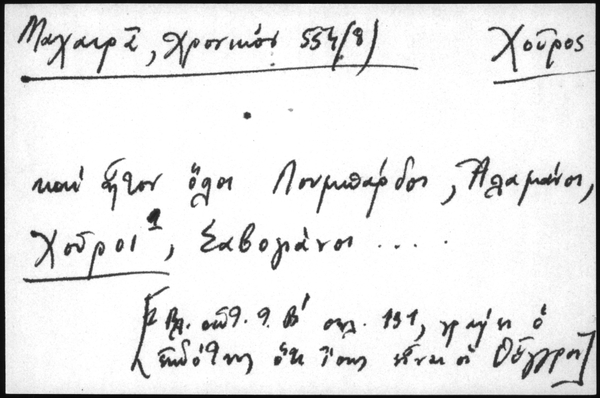 Μαχαιρᾶ, Χρονικόν 554(8) Χοῦρος
καὶ ἦτον ὅλοι Λουμπάρδοι, Ἀλαμάνοι,
Χοῦροι¹, Σαβογιάνοι ....
[Βλ. σελ. 131, γράφει ὁ
ἐκδότης ὅτι ἴσως εἶναι οἱ Οὕγγροι]